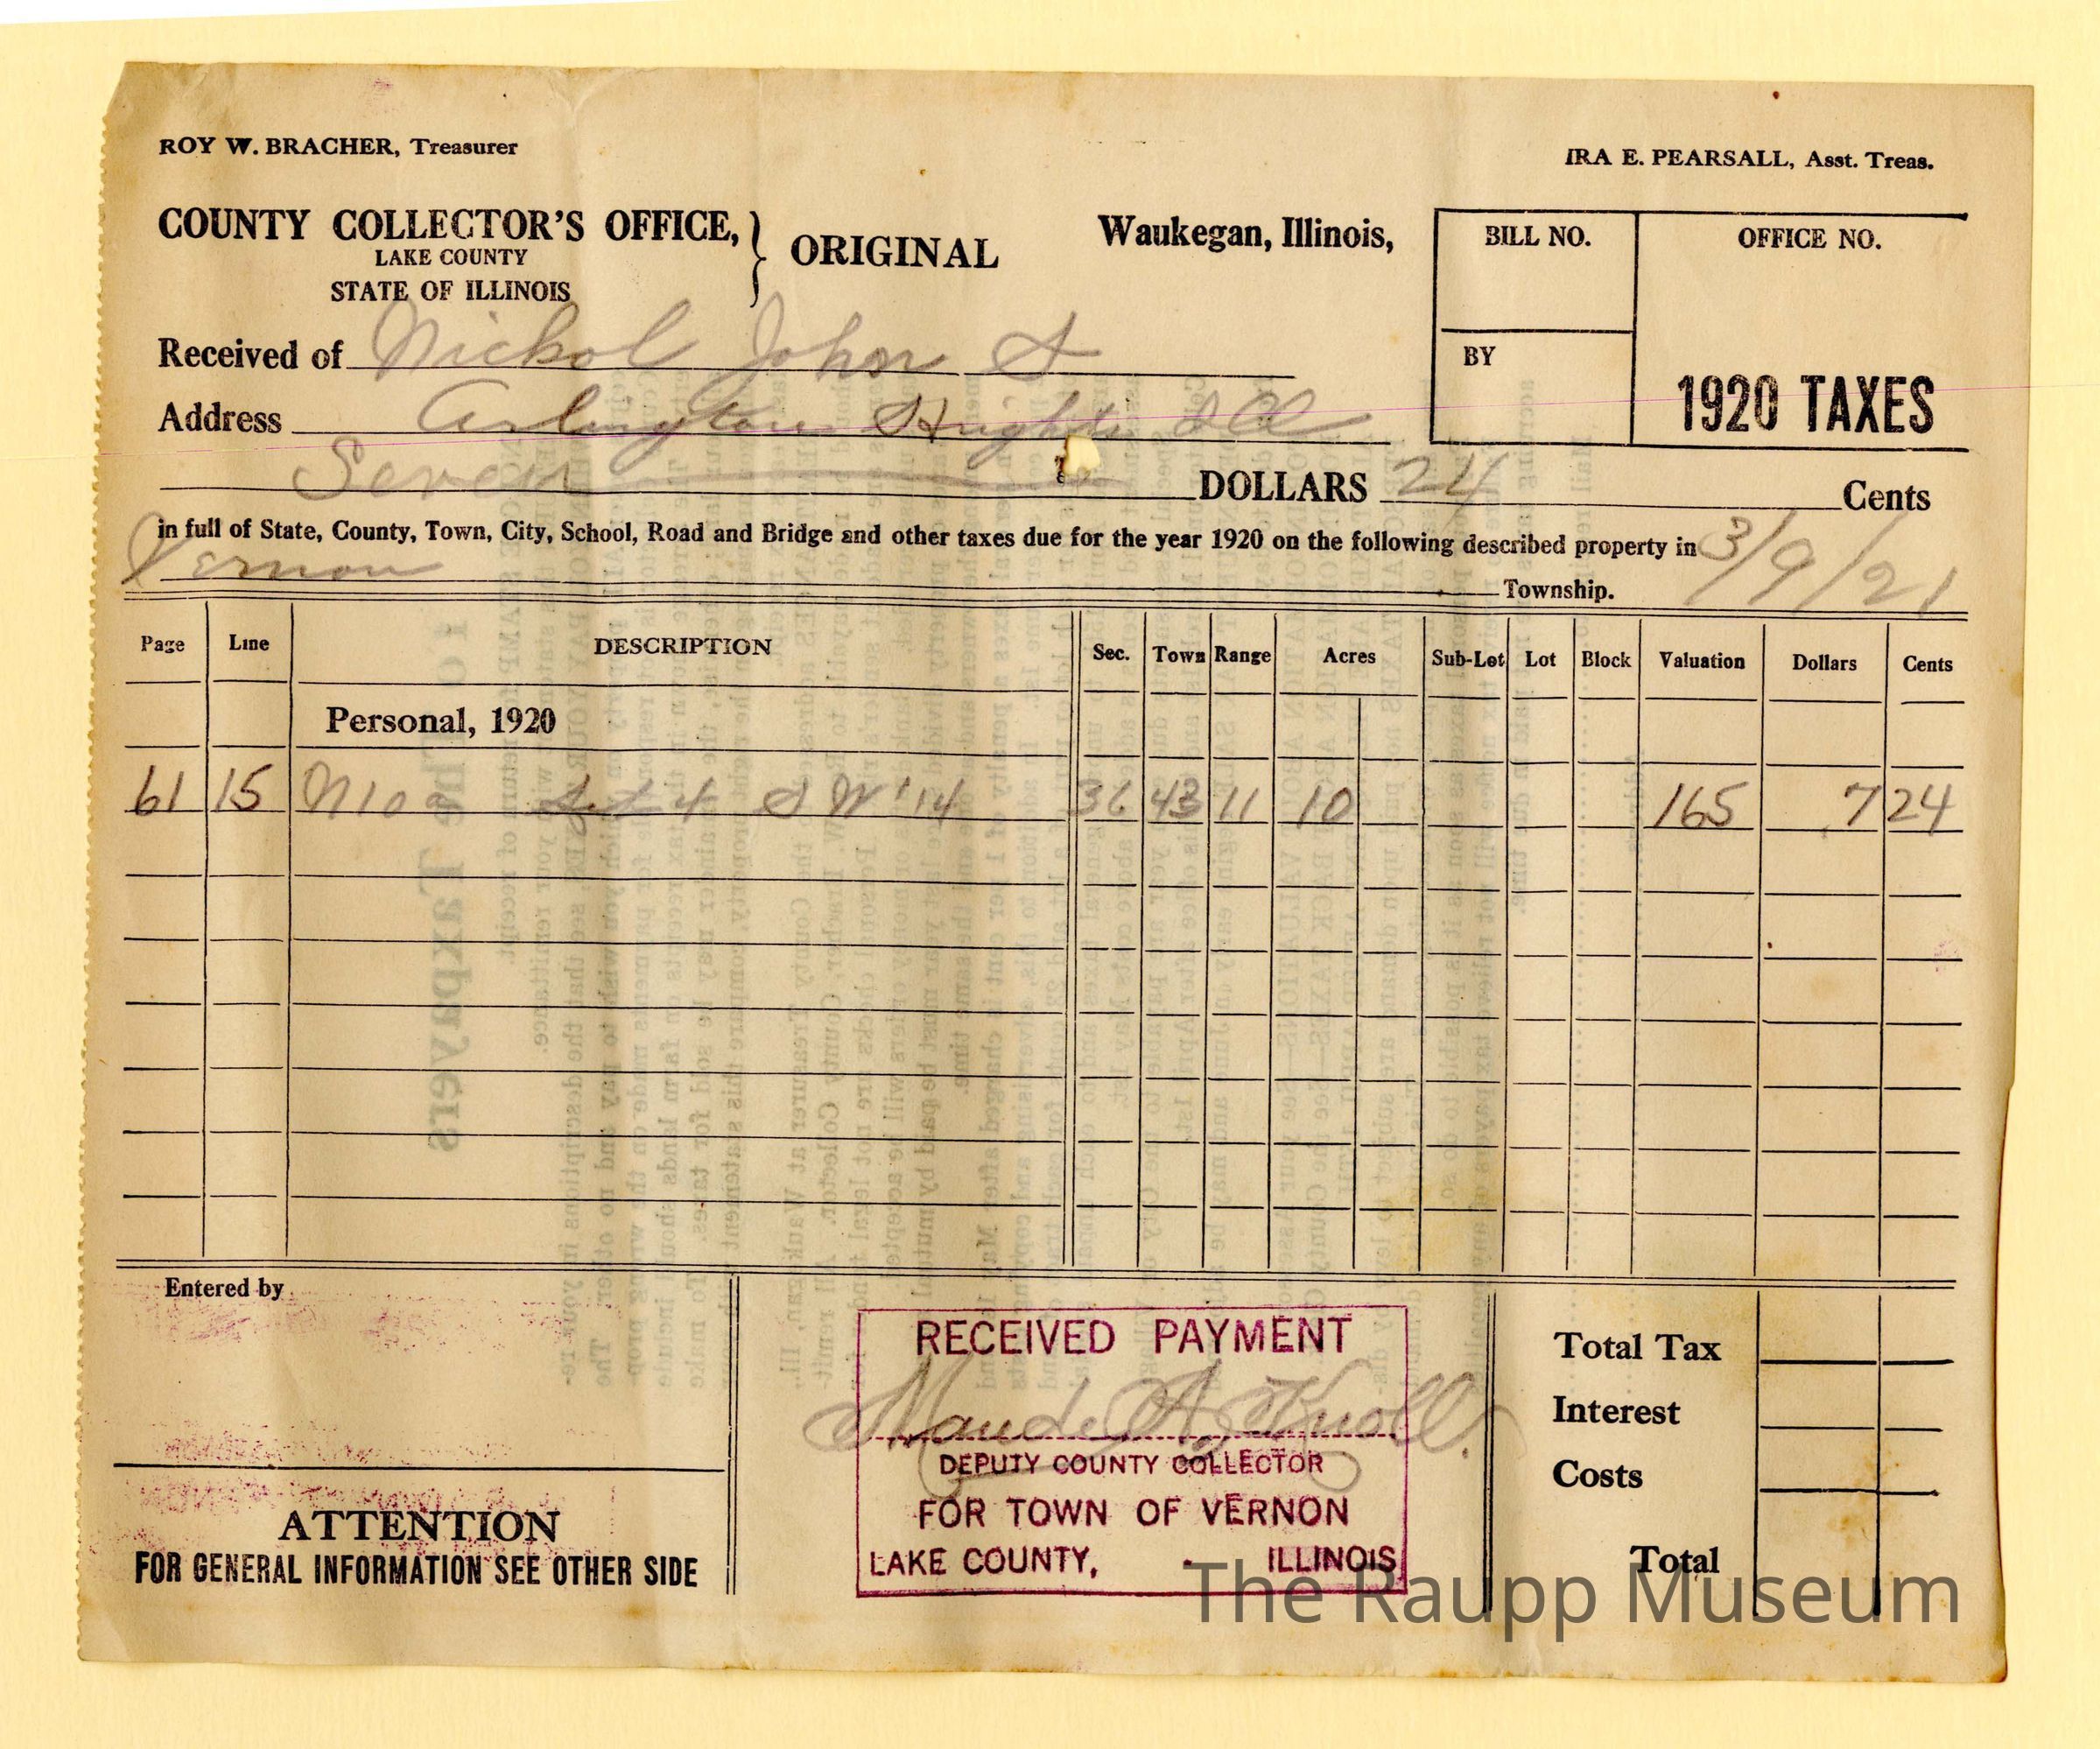 ROY W. BRACHER, Treasurer
IRA E. PEARSALL, Asst. Treas.
COUNTY COLLECTOR'S OFFICE,
LAKE COUNTY
STATE OF ILLINOIS
ORIGINAL
Waukegan, Illinois,
BILL NO.
OFFICE NO.
Received of Nickol John S
BY
1920 TAXES
Address Arlington Hights Ill
Seven DOLLARS 24 Cents
in full of State, County, Town, City, School, Road and Bridge and other taxes due for the year 1920 on the following described property in 3/9/21
Vernon Township.
Page Line DESCRIPTION Sec. Town Range Acres Sub-Lot Lot Block Valuation Dollars Cents
Personal, 1920
61 15 N10a Lot 4 S W 1/4 36 43 11 10 165 7 24
Entered by
RECEIVED PAYMENT
Maude A. Knoll
DEPUTY COUNTY COLLECTOR
FOR TOWN OF VERNON
LAKE COUNTY, ILLINOIS
Total Tax
Interest
Costs
Total
ATTENTION
FOR GENERAL INFORMATION SEE OTHER SIDE
The Raupp Museum